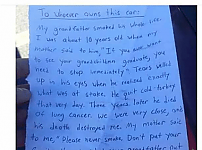 To whoever owns this car:
My grandfather smoked his whole life.
I was about 10 years old when my
mother said to him, "If you ever want
to see your grandchildren graduate, you
need to stop immediately." Tears welled
up in his eyes when he realized exactly
what was at stake. He quit cold turkey
that very day. Three years later he died
of lung cancer. We were very close, and
his death destroyed me. My mother said
to me, "Please never smoke. Don't put your
grandfather put